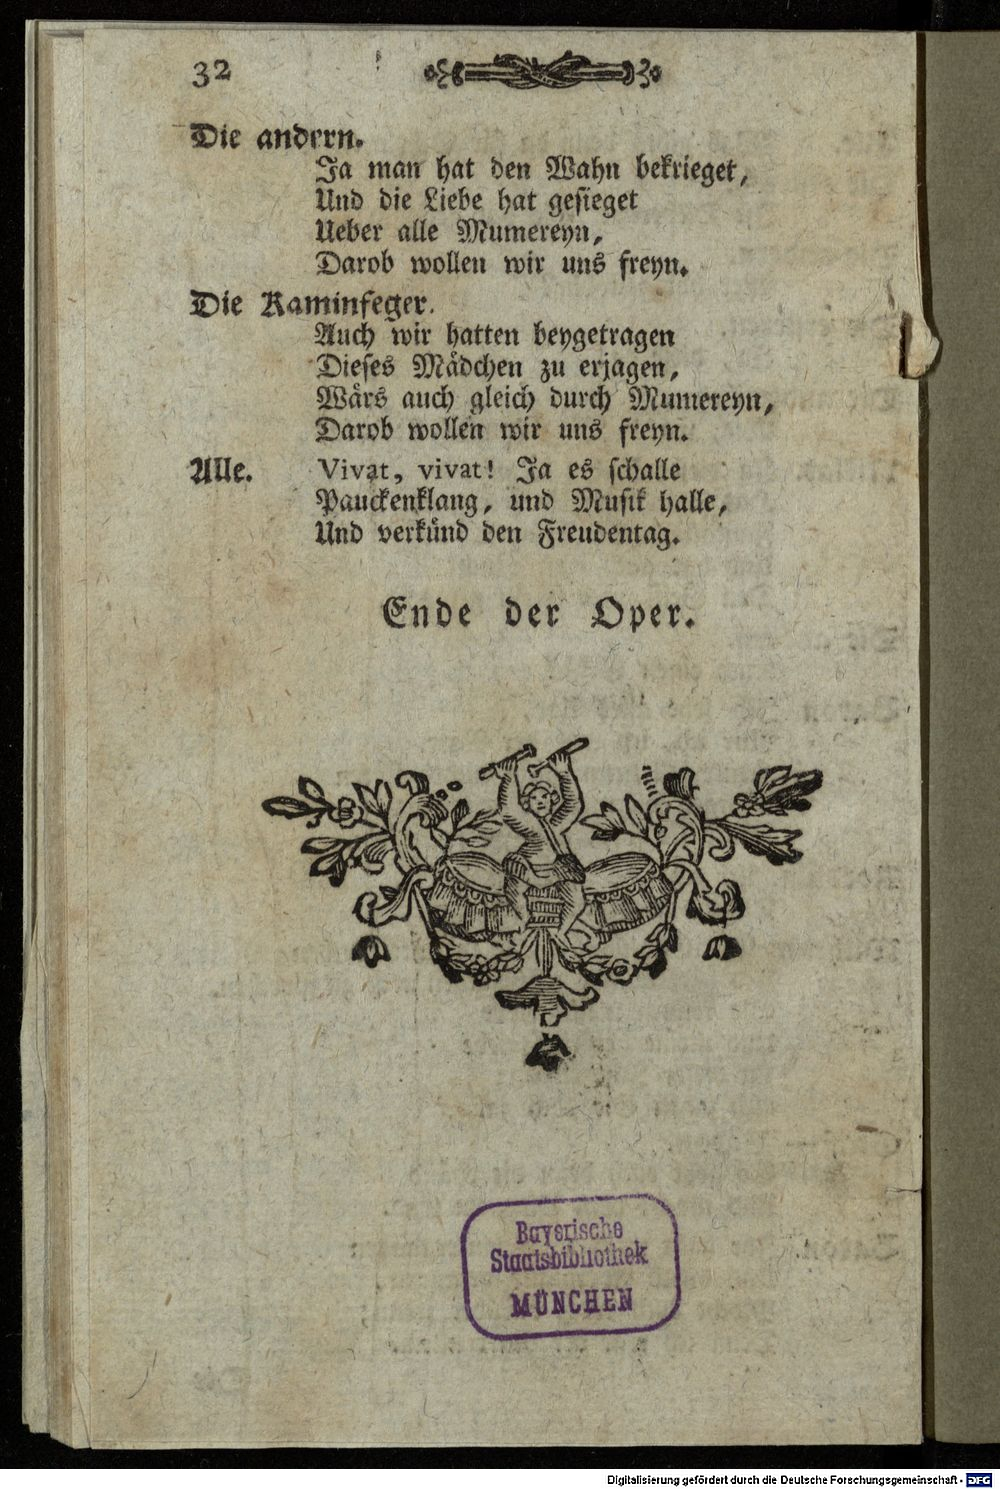 32
Die andern.
Ja man hat den Wahn bekrieget,
Und die Liebe hat gesieget
Ueber alle Mumereyn,
Darob wollen wir uns freyn.
Die Kaminfeger.
Auch wir hatten beygetragen
Dieses Mådchen zu erjagen,
Wårs auch gleich durch Mumereyn,
Darob wollen wir uns freyn.
Alle. Vivat, vivat! Ja es schalle
Pauckenklang, und Musik halle,
Und verkünd den Freudentag.
Ende der Oper.
Bayerische
Staatsbibliothek
MÜNCHEN
Digitalisierung gefördert durch die Deutsche Forschungsgemeinschaft - DFG